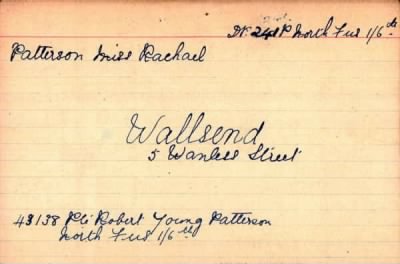 North Fus 1/6th
Patterson Miss Rachael
Wallsend
5 Wanless Street
43138 Pte Robert Young Patterson
North Fus 1/6th